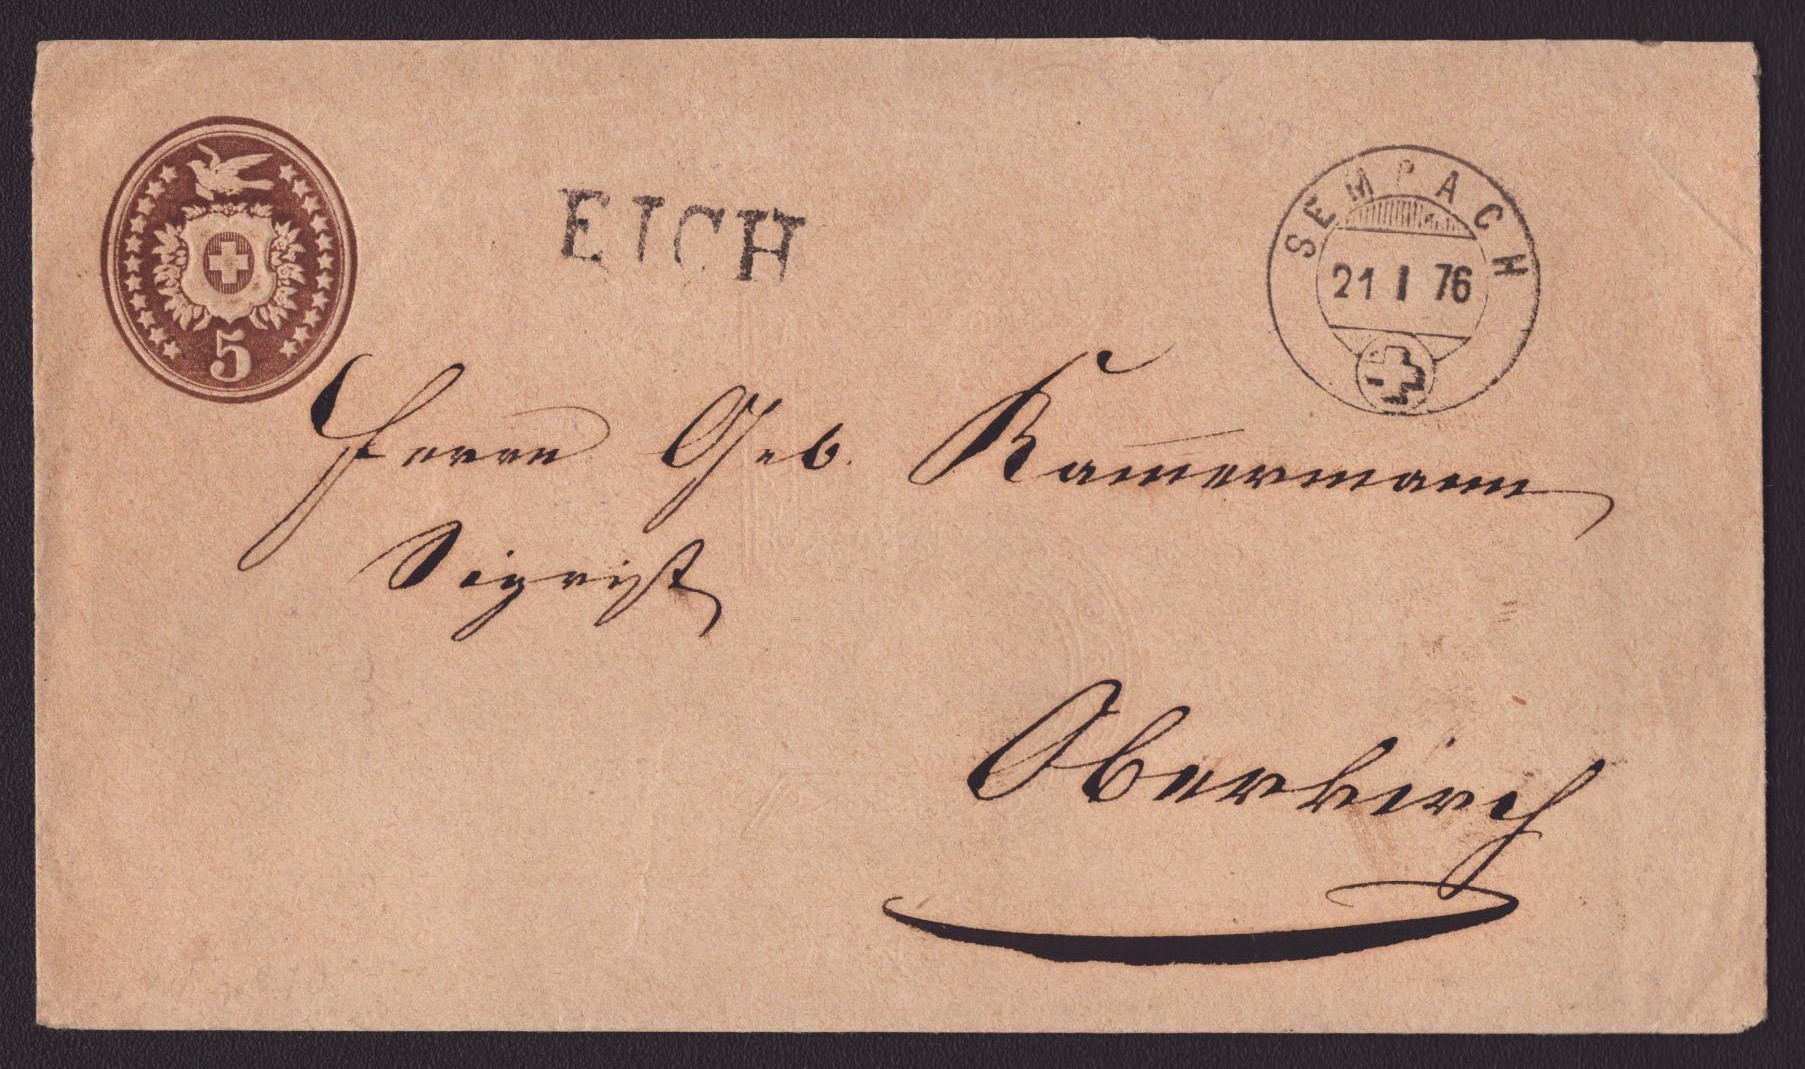 5
EICH
SEMPACH
21 I 76
Herrn Geb. Kam̄ermann
Sigrist
Oberkirch